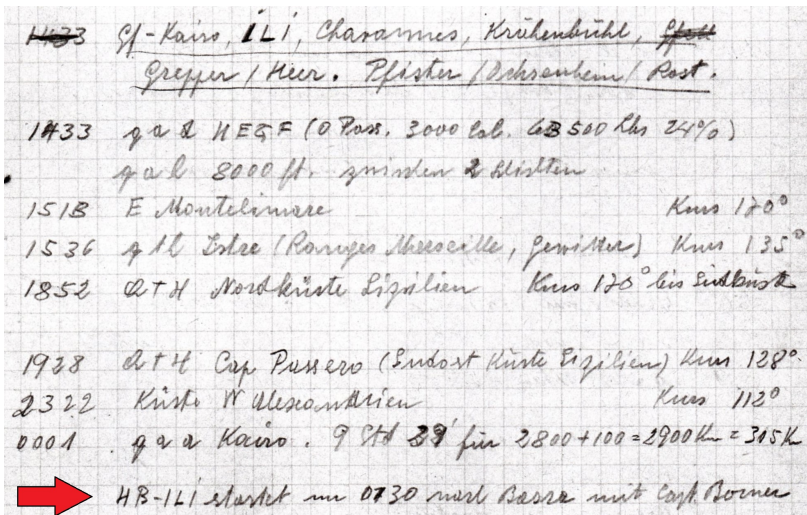 1433 Gf-Kairo, ILI, Chavannes, Krähenbühl,
Grepper / Heer. Pfister / Ochsenbein / Rost.
1433 q a d HEGF (0 Pass. 3000 lab. GB 500 lbs 24%)
q a h 8000 ft. zwischen 2 Schichten
1518 E Montelimare Kurs 170°
1536 q a h Istre (Ranges Marseille, Gewitter) Kurs 135°
1852 QTH Nordküste Sizilien Kurs 170° bis Südküste
1928 QTH Cap Passero (Südost Küste Sizilien) Kurs 128°
2322 Küste W Alexandrien Kurs 112°
0001 q a a Kairo. 9 Std 29' für 2800+100=2900 Km = 305 K
HB-ILI startet um 0730 nach Basra mit Capt Borner